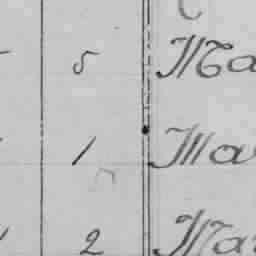 5 Ma
1 Ma
2 Mar